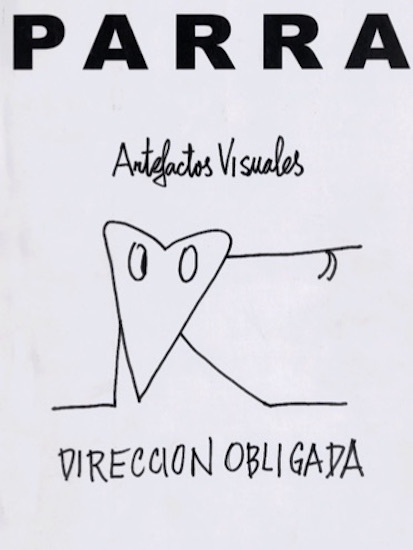 PARRA
Artefactos Visuales
DIRECCION OBLIGADA